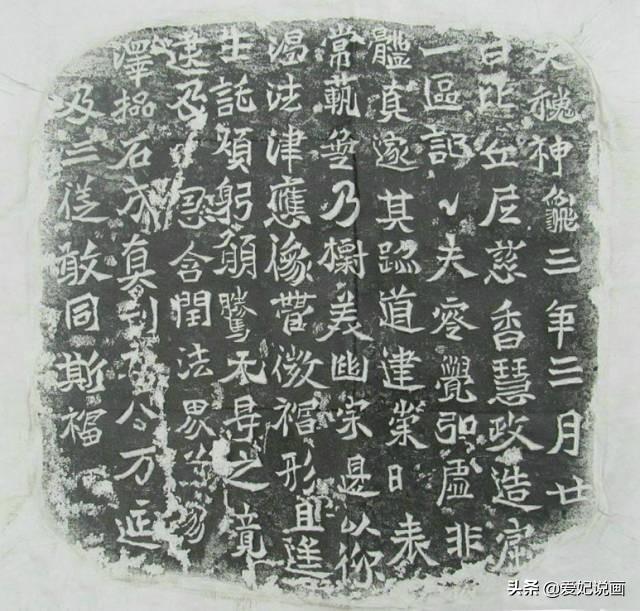 大魏神龜三年三月廿
日比丘尼慈香慧政造窟
一區記〻夫零覺弘虛非
體真邃其跡道建崇日表
常軌無乃標美幽宗是以仰
渴法津應像營微福形且遙
生託煩躬願騰无导之竟
逮及恩含閏法界
澤石成真刊万延
及三從敢同斯福
头条 @爱妃说画